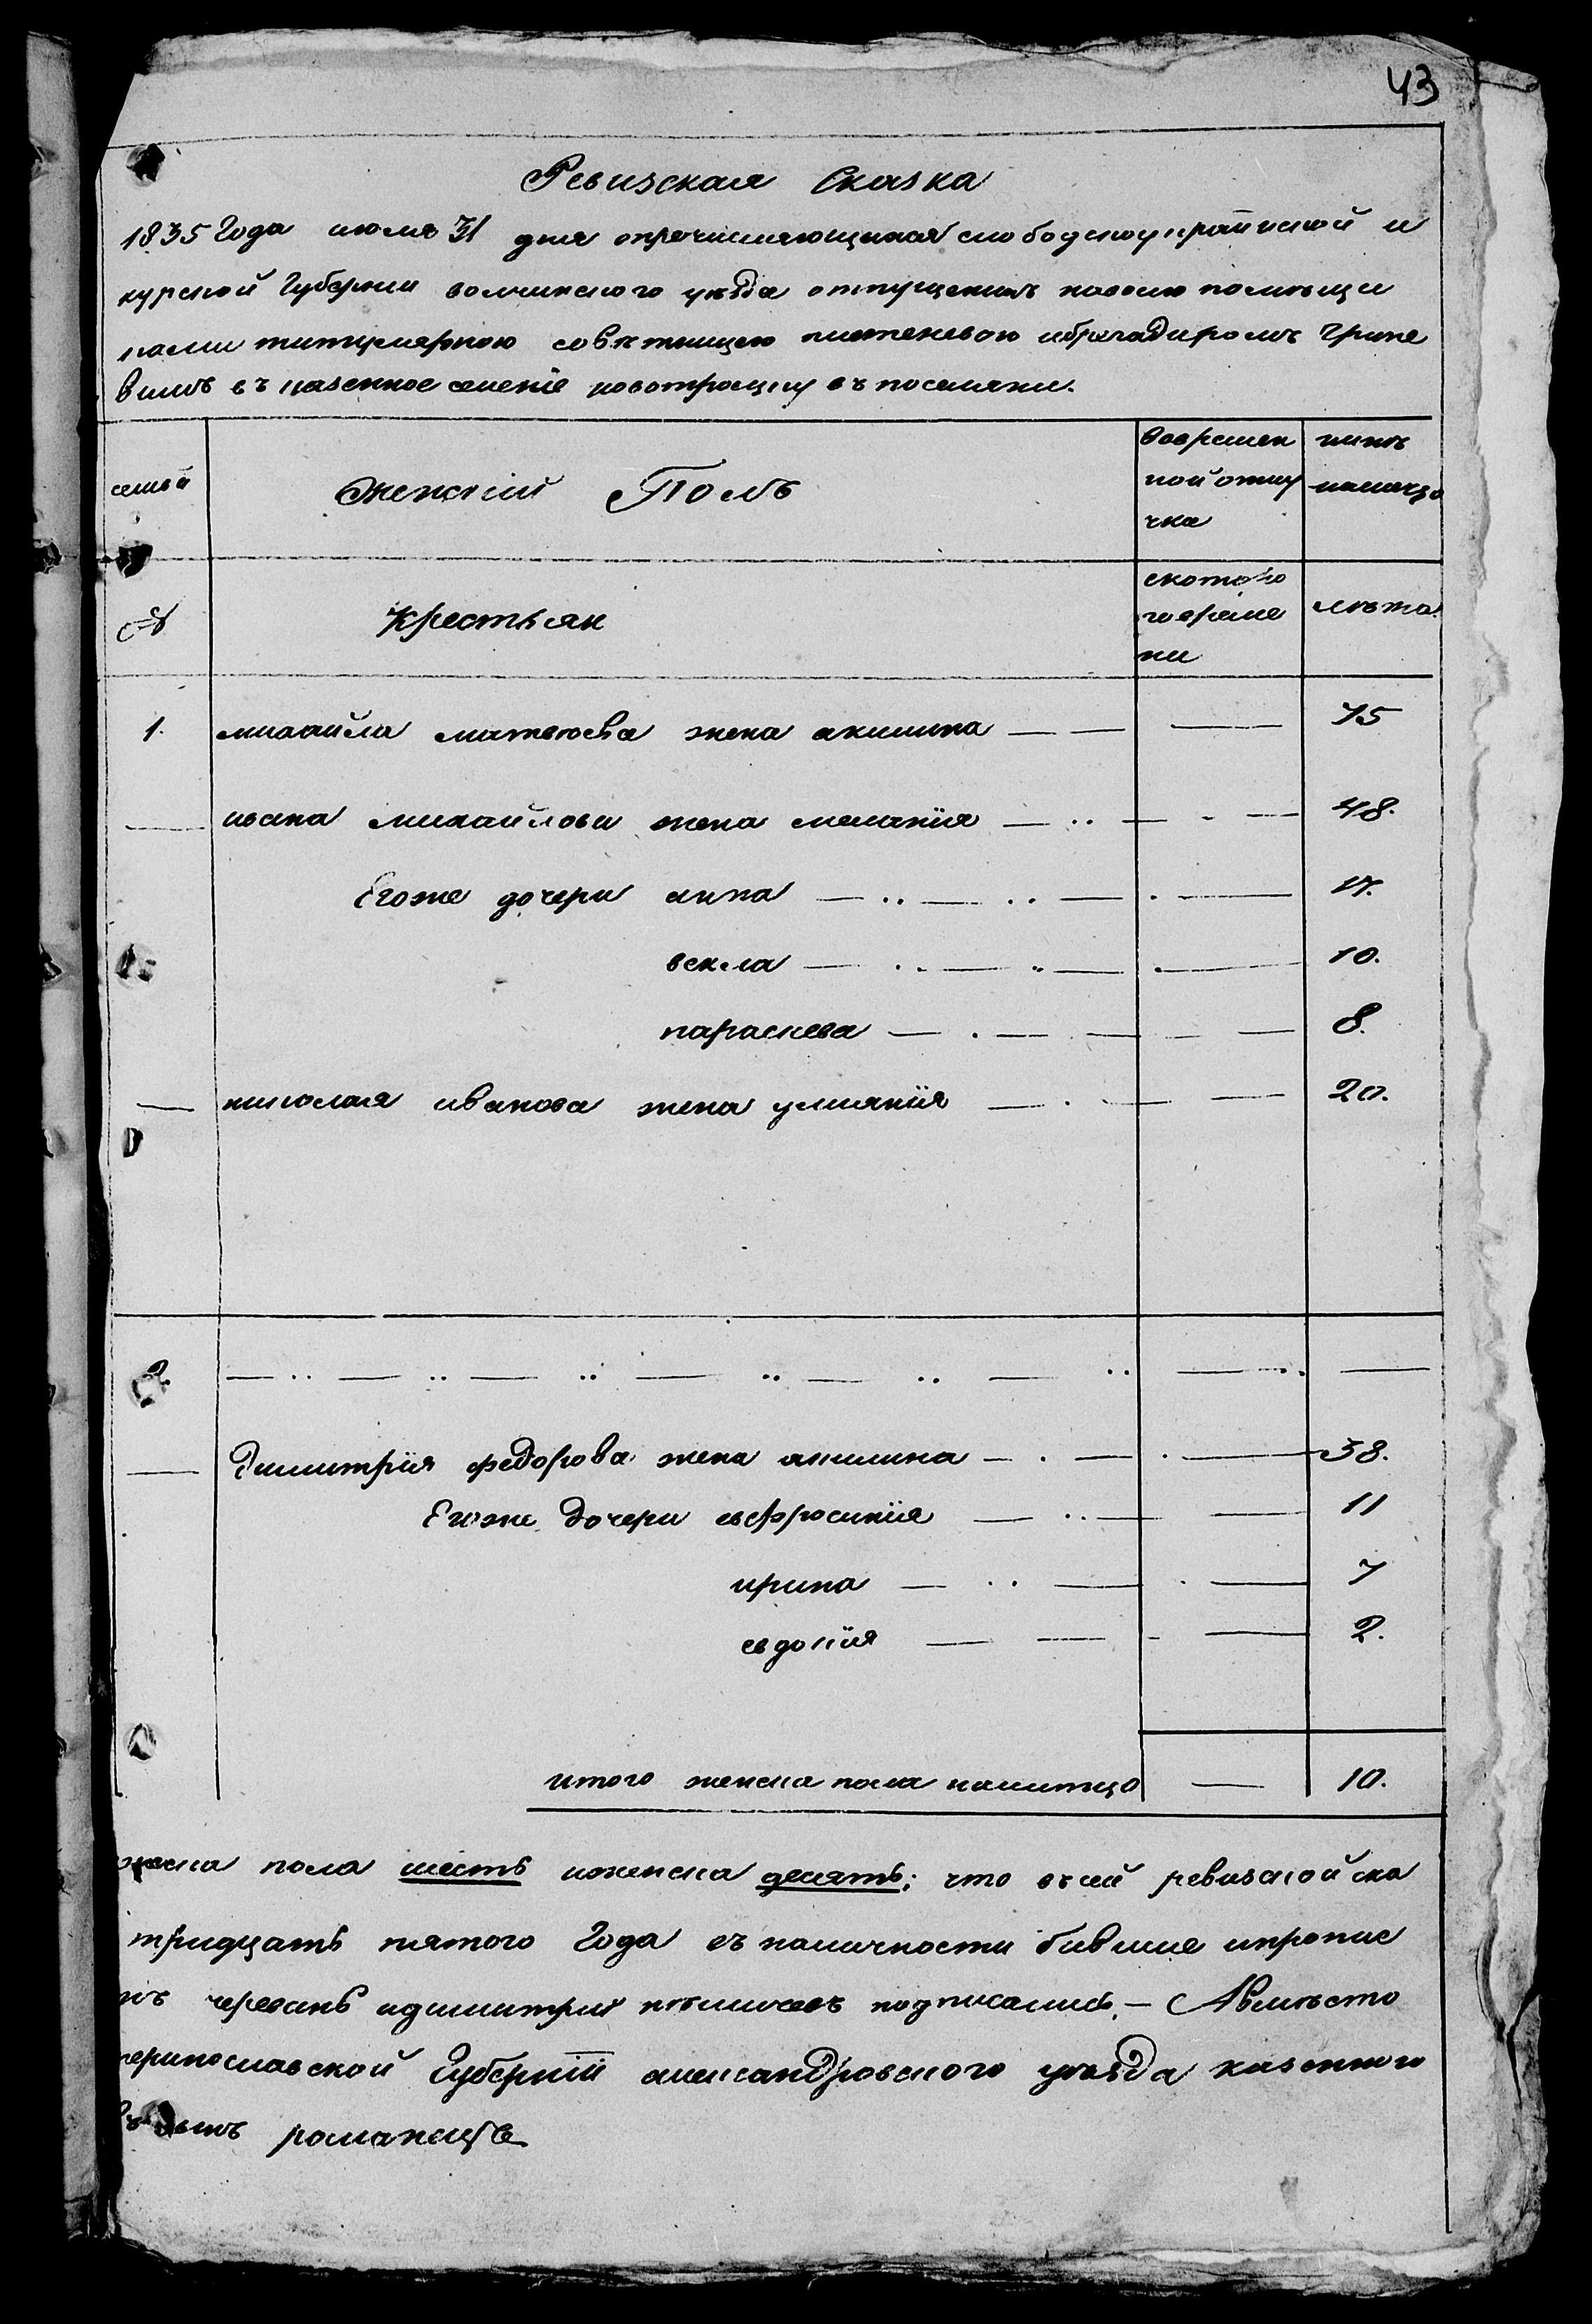 43
Ревизская Сказка
1835 Года июля 31 дня опречисляющихся слободскоукраинской и
курской Губернии волчинского уезда отпущених наволю помещи
ками титулярною советницею
вимъ въ казенное селение новотроицку въ поселяни.
семьи
Женский Полъ
вовремен
ной отлу
чка
нинъ
налицо
№
Крестьян
скотого
говреме
ни
лѣта.
1. михайла матвеюва жена акилина — — — 75
— ивана михайлова жена меланїя — .. — - — 48.
Егоже дочери анна — .. — .. — . — 17.
векла — .. — .. — . — 10.
параскева — . — — — 8.
— николая иванова жена улиянїя — . — — 20.
2. — .. — .. — .. — .. — .. — .. — .. —
— Димитрїя федорова жена акилина — . — . — 38.
Егоже дочери евфросинїя — .. — — 11
ирина — .. — . — 7
евдокїя — — - — 2.
итого женска пола налитцо — 10.
пола шесть иженска десять; что въсей ревизской ска
тридцать пятого Года въ наличности бившие ипропис
идимитрий подписались. — Авместо
теринославской Губернїи александровского уезда казенного
романенцъ